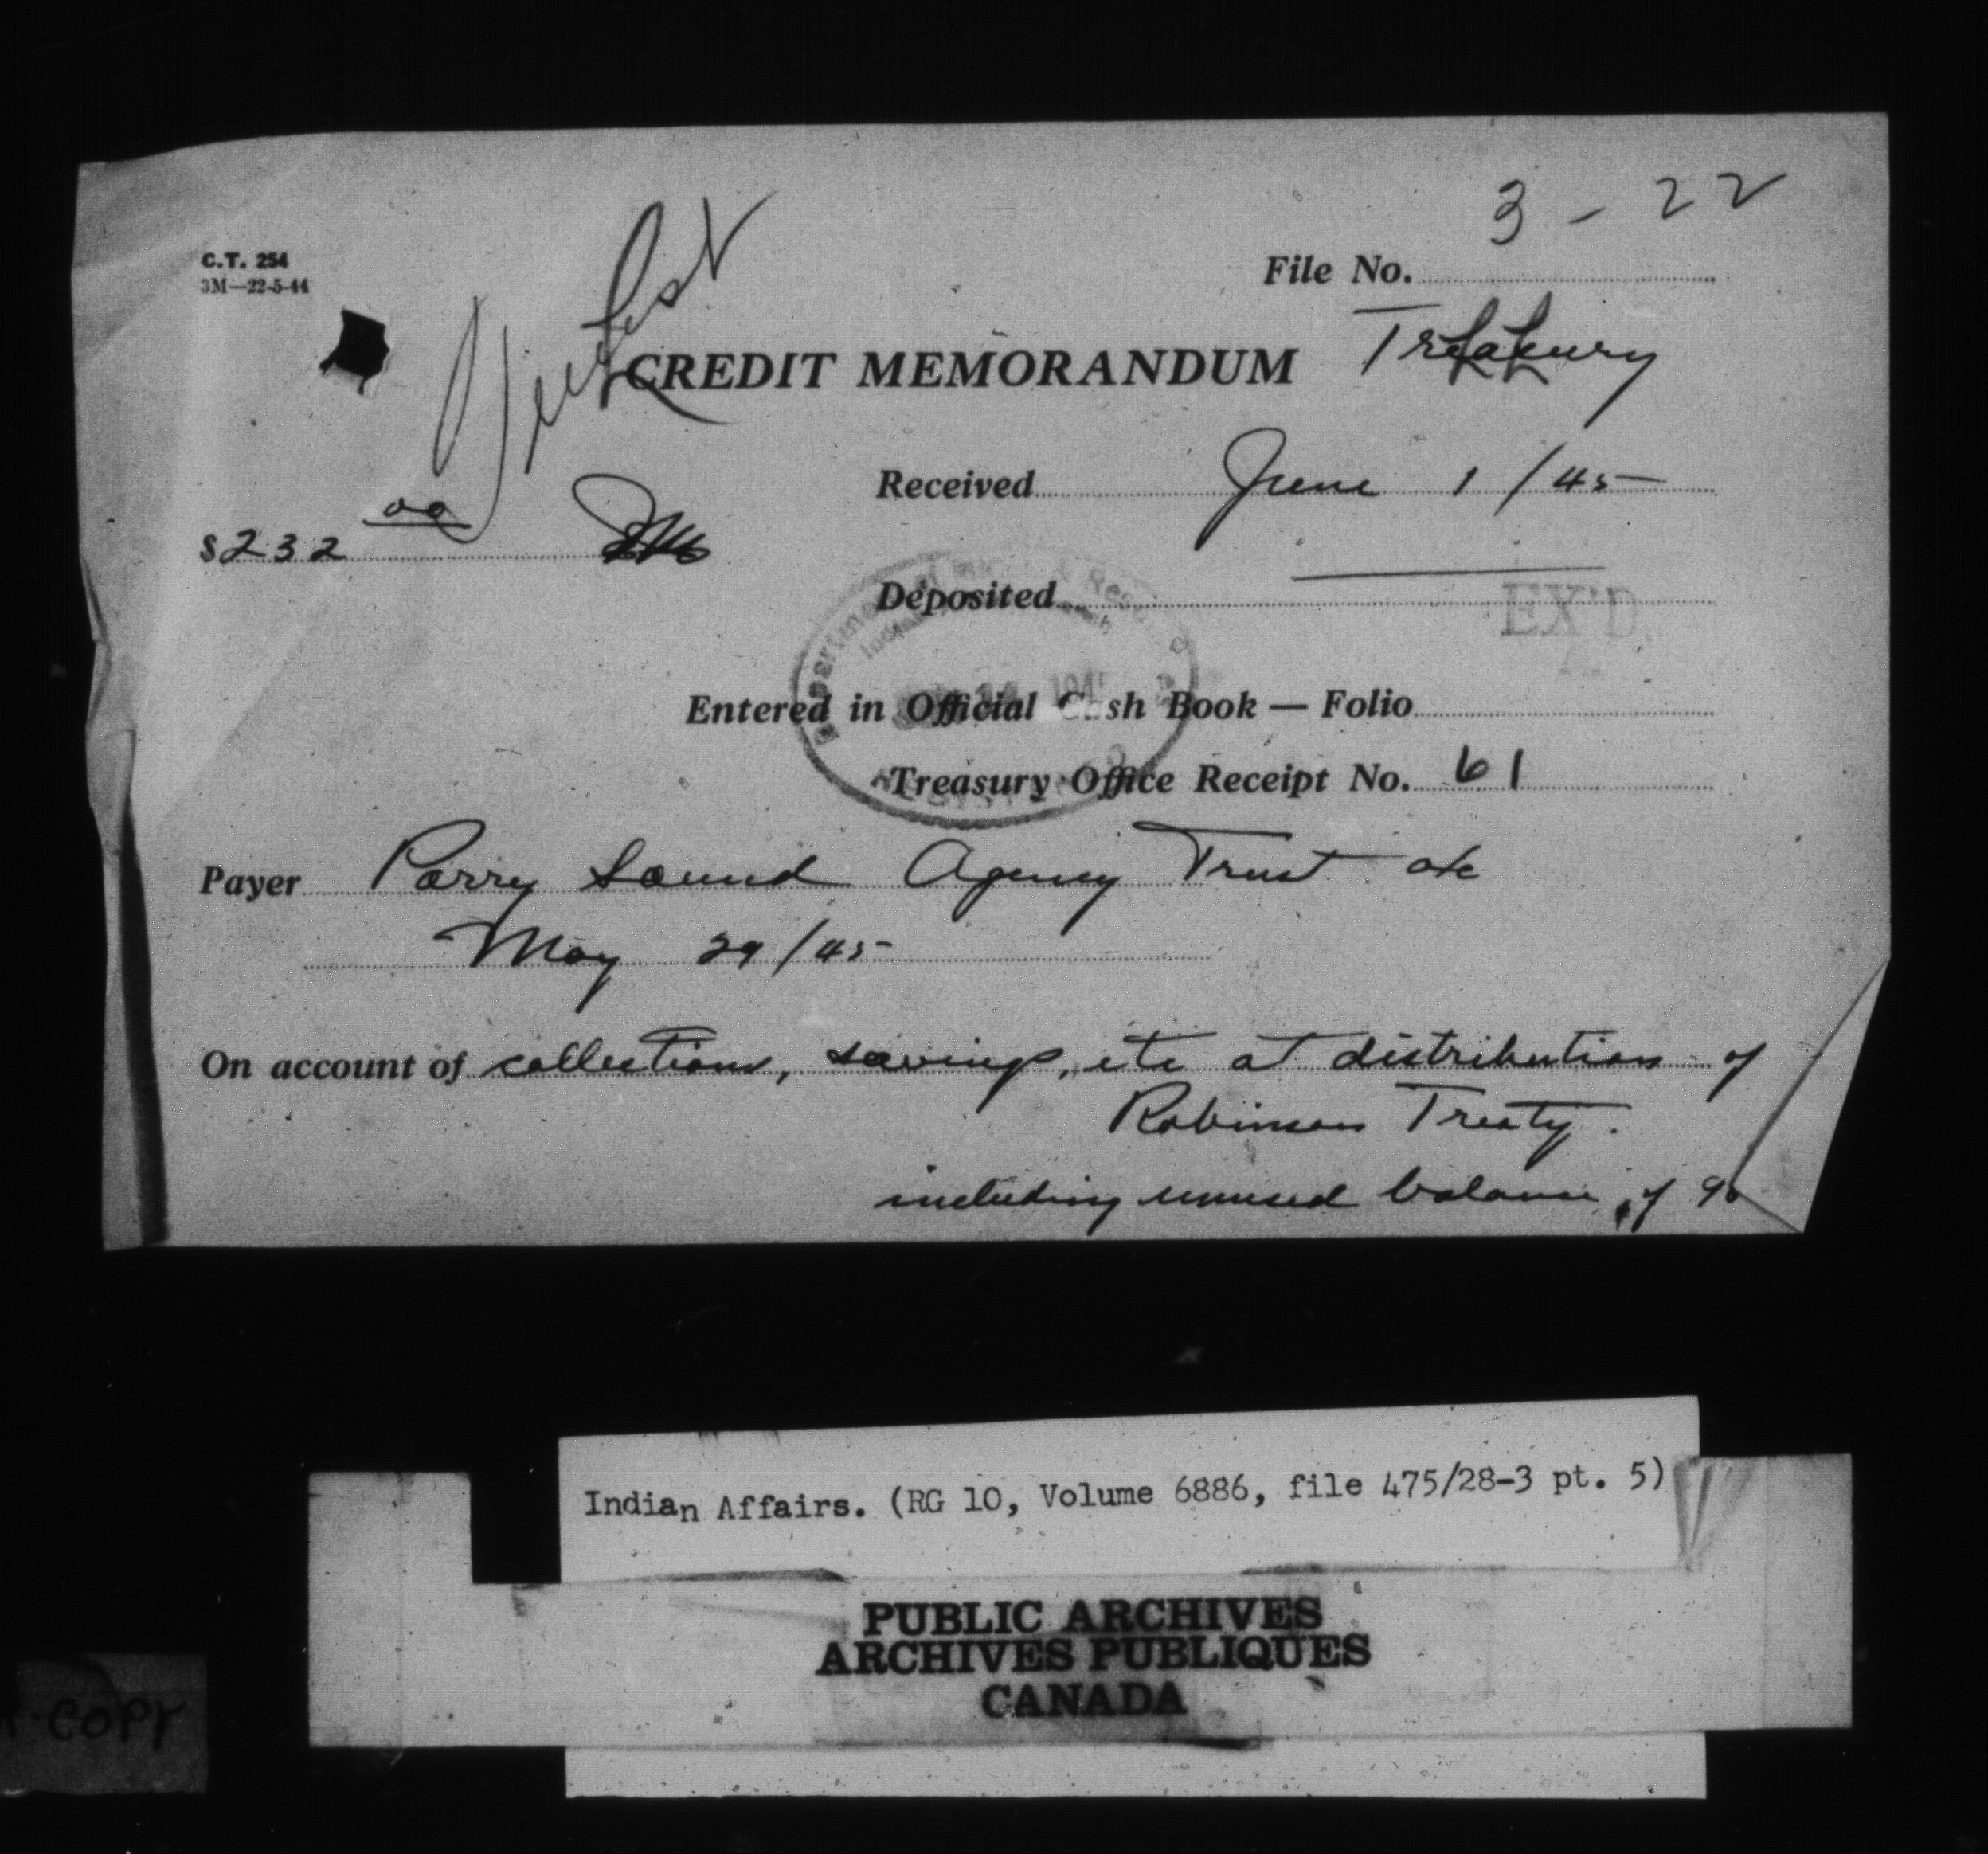 3 - 22
C.T. 254
3M—22-5-44
File No.
CREDIT MEMORANDUM Treasury
Received June 1/45
$232 00
Deposited
EX'D
Entered in Official Cash Book — Folio
Treasury Office Receipt No. 61
Payer Parry Sound Agency Trust a/c
May 29/45
On account of collections, savings, etc at distribution of
Robinson Treaty.
including unused balance of 90
Indian Affairs. (RG 10, Volume 6886, file 475/28-3 pt. 5)
PUBLIC ARCHIVES
ARCHIVES PUBLIQUES
CANADA
COPY